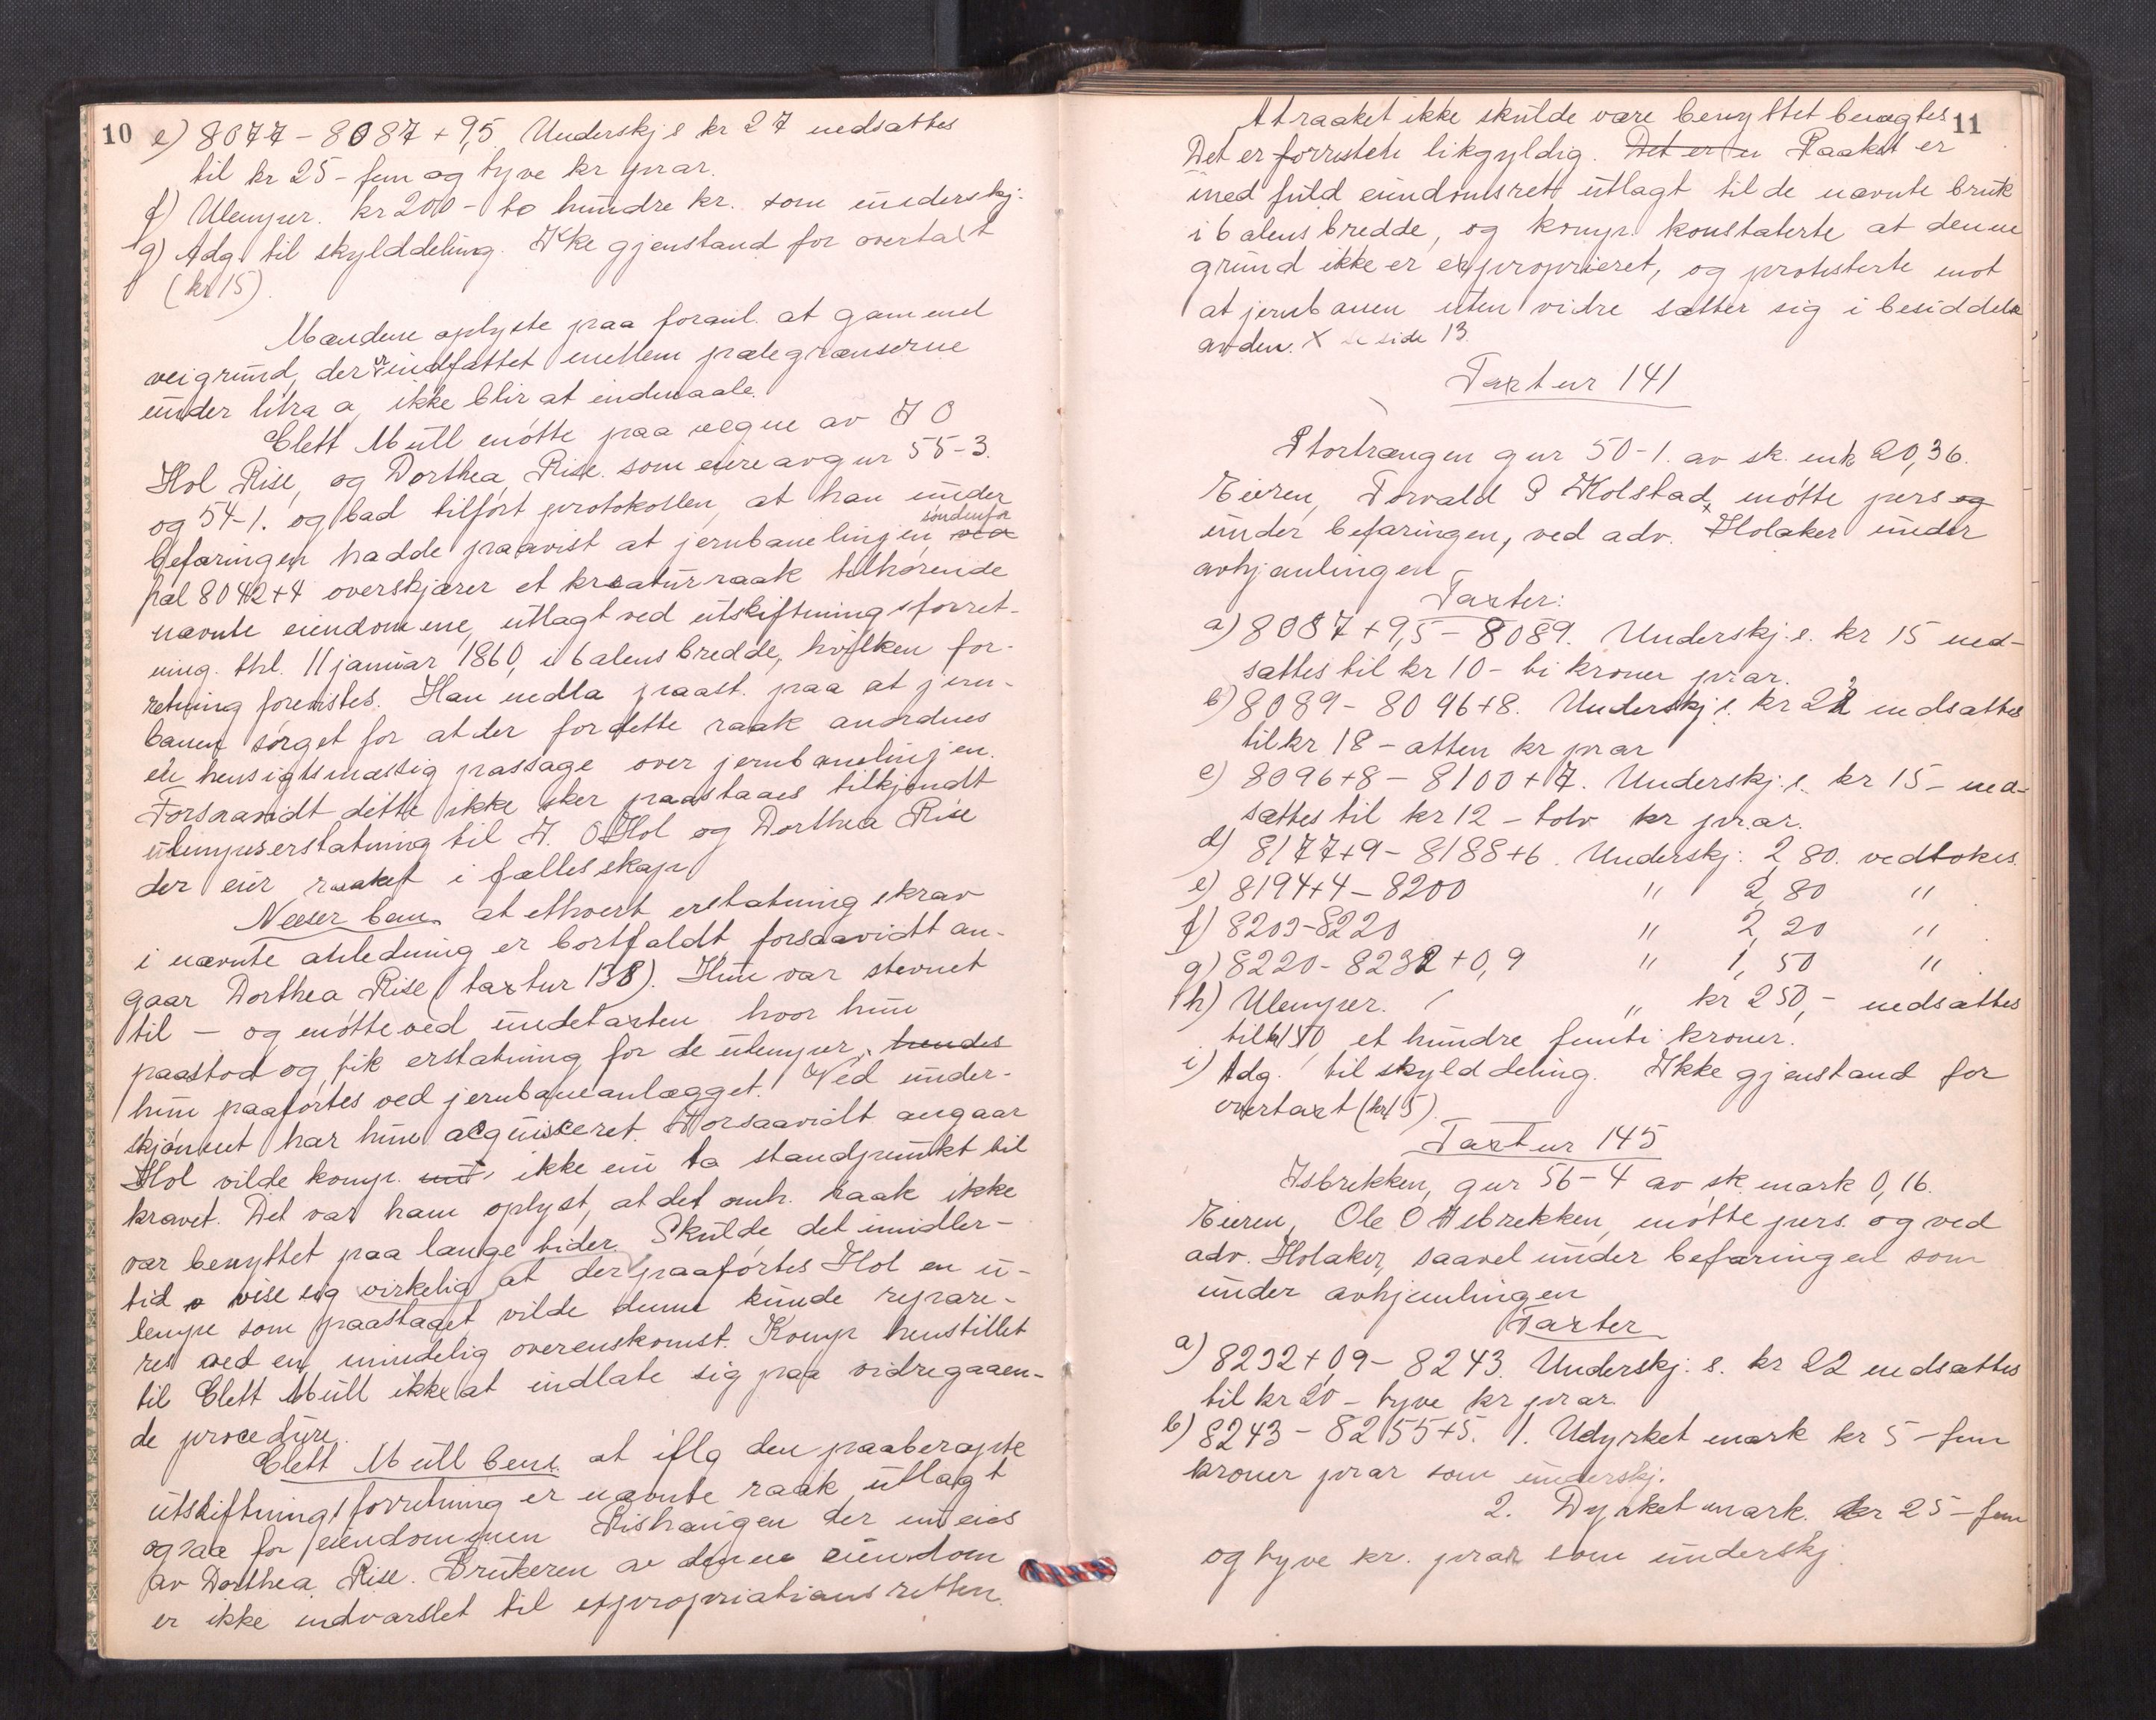 10 e) 8077 - 8087 + 9,5 Underskj s kr 27 nedsattes
til kr 25 - fem og tyve kr pr ar.
f) Ulemper. kr 200 - to hundre kr. som underskj:
g) Adg. til skylddeling. Ikke gjenstand for overtaxt
(kr 15).
Mændene oplyste paa foranl. at gammel
veigrund, der er indfattet mellem pælegrænserne
under litra a, ikke blir at indmaale.
Clett Müll møtte paa vegne av J O
Hol Rise, og Dorthea Rise som eiere av gnr 55-3.
og 54-1. og bad tilført protokollen, at han under
befaringen hadde paavist at jernbanelinjen, ved søndenfor
pæl 8042+4 overskjærer et kreaturraak tilhørende
nævnte eiendomme, utlagt ved utskiftningsforret-
ning. thl. 11 januar 1860, i 6 alens bredde, hvilken for-
retning forevistes. Han nedla paast. paa at jern-
banen sørget for at der for dette raak anordnes
en hensigtsmæssig passage over jernbanelinjen.
Forsaavidt dette ikke sker paastaaes tilkjendt
ulempeserstatning til J. O Hol og Dorthea Rise
der eier raaket i fællesskap
Neeser bem. at ethvert erstatningskrav
i nævnte anledning er bortfaldt forsaavidt an-
gaar Dorthea Rise (taxtnr 138). Hun var stevnet
til - og møtte ved undetaxten hvor hun
paastod og fik erstatning for de ulemper, hendes
hun paaførtes ved jernbaneanlægget. Ved under-
skjønnet har hun acquisceret. Forsaavidt angaar
Hol vilde komp. ikke nu ta standpunkt til
kravet. Det var ham oplyst, at det omh. raak ikke
var benyttet paa lange tider. Skulde det imidler-
tid vise sig virkelig at der paaførtes Hol en u-
lempe som paastaaet vilde denne kunde repare-
res ved en mindelig overenskomst. Komp henstillet
til Clett Müll ikke at indlate sig paa vidregaaen-
de procedure.
Clett Müll bem. at iflg den paaberopte
utskiftningsforretning er nævnte raak utlagt
ogsaa for eiendommen Rishaugen der nu eies
av Dorthea Rise. Brukeren av denne eiendom
er ikke indvarslet til expropriationsretten.
At raaket ikke skulde være benyttet benegtes 11
Det er forresten likgyldig. Det er en Raaket er
med fuld eiendomsrett utlagt til de nævnte bruk
i 6 alens bredde, og komp. konstaterte at denne
grund ikke er exproprieret, og protesterte mot
at jernbanen uten videre sætter sig i besiddelse
av den. X se side 13.
Taxtnr 141
Stortrangen gnr 50-1. av sk. mk 20,36.
Eieren, Torvald P Kolstad, møtte pers og
under befaringen, ved adv. Holaker under
avhjemlingen
Taxter:
a) 8087+9,5 - 8089. Underskj. s. kr 15 ned-
sattes til kr 10 - ti kroner pr ar.
b) 8089 - 8096+8. Underskj s. kr 22 nedsattes
til kr 18 - atten kr pr ar
c) 8096+8 - 8100+7. Underskj. s. kr 15 - ned-
sættes til kr 12 - tolv kr pr. ar.
d) 8177+9 - 8188+6. Underskj: 2,80. vedtokes.
e) 8194+4 - 8200 " 2,80 "
f) 8203 - 8220 " 2,20 "
g) 8220 - 8232+0,9 " 1,50 "
h) Ulemper. " kr 250,- nedsattes
til kr 150 et hundre femti kroner.
i) Adg. til skylddeling. Ikke gjenstand for
overtaxt (kr 15).
Taxtnr 145
Isbrekken, gnr 56-4 av sk. mark 0,16.
Eieren, Ole O Isbrekken, møtte pers. og ved
adv. Holaker, saavel under befaringen som
under avhjemlingen
Taxter
a) 8232+0,9 - 8243. Underskj: s. kr 22 nedsattes
til kr 20 - tyve kr pr ar.
b) 8243 - 8255+5. 1. Udyrket mark kr 5 - fem
kroner pr ar som underskj.
2. Dyrket mark. kr 25 - fem
og tyve kr. pr ar som underskj.